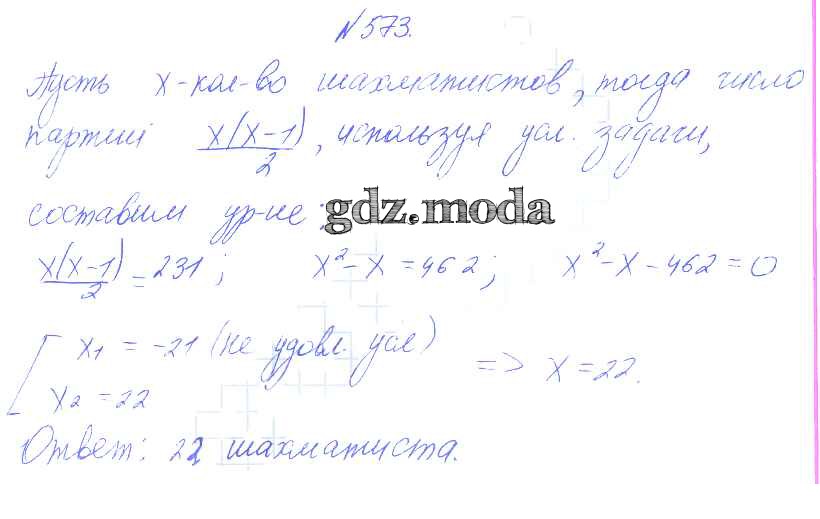 №573.
Пусть x-кол-во шахматистов, тогда число
партий x(x-1)/2, используя усл. задачи,
составим ур-ие: gdz.moda
x(x-1)/2 = 231; x²-x = 462; x²-x-462=0
[ x₁ = -21 (не удовл. усл)
x₂ = 22 => x = 22.
Ответ: 22 шахматиста.